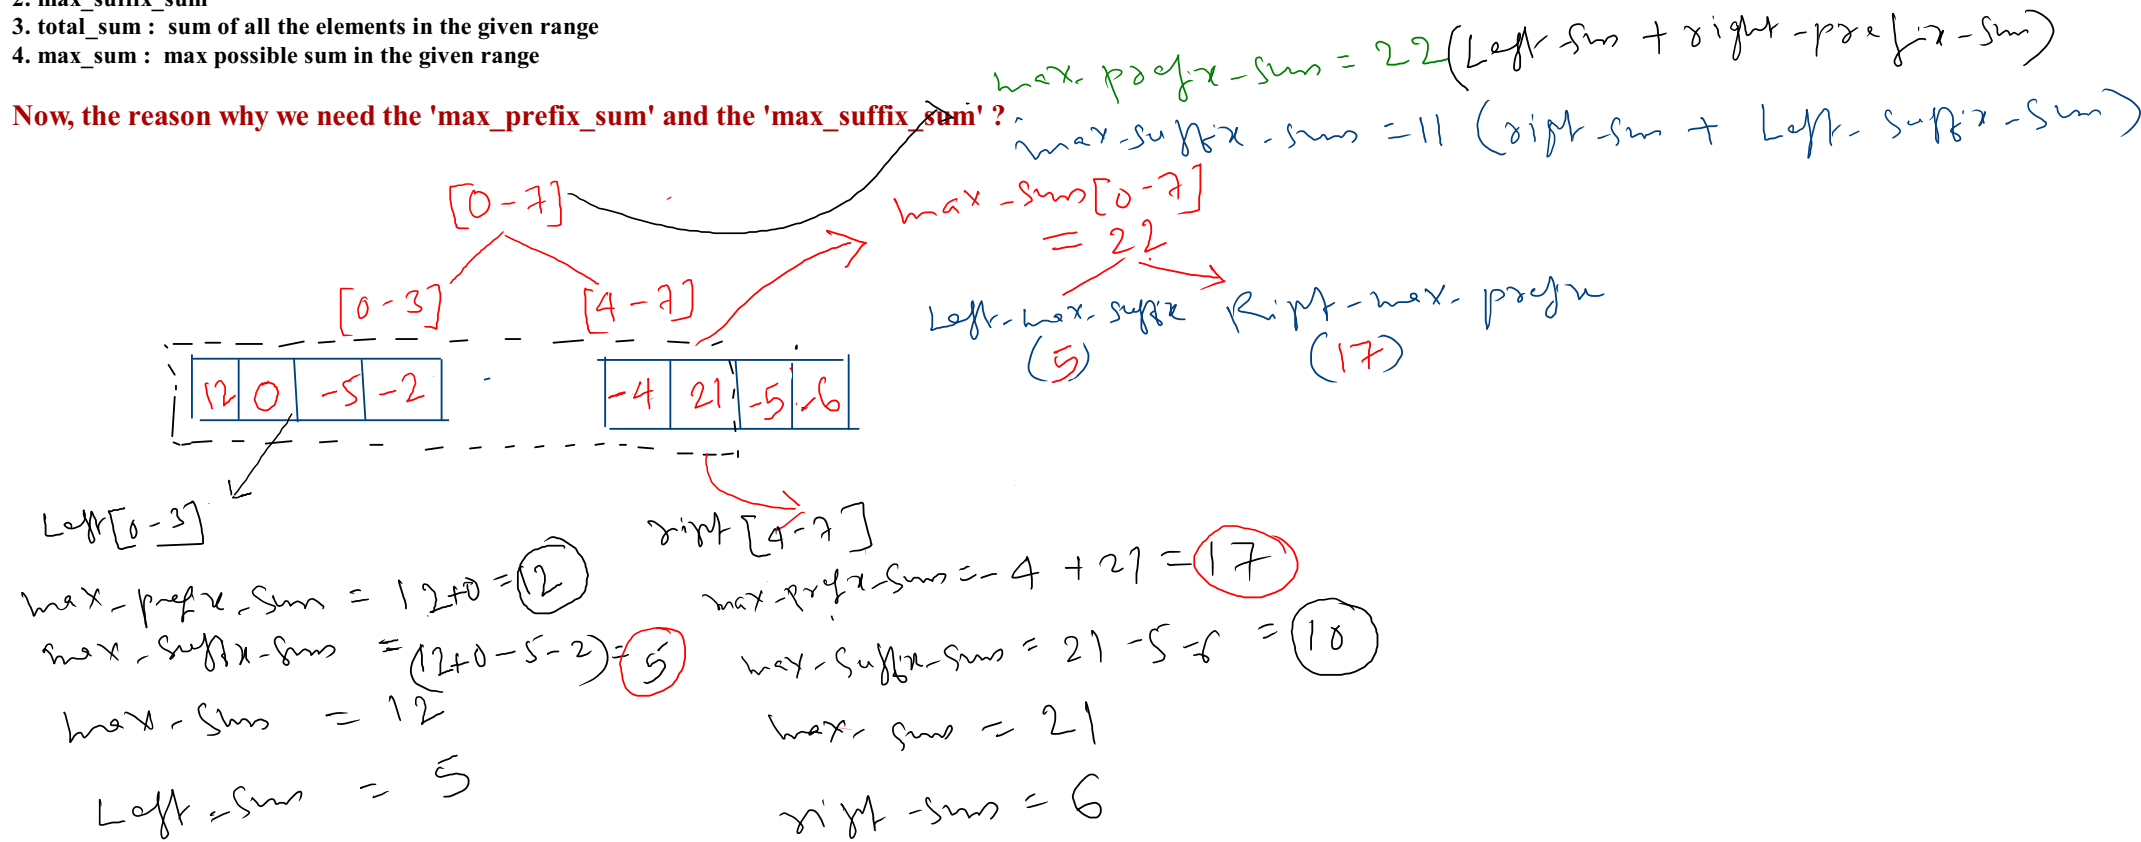 2. max_suffix_sum
3. total_sum : sum of all the elements in the given range
4. max_sum : max possible sum in the given range
max-prefix-sum = 22 (Left-sum + right-prefix-sum)
Now, the reason why we need the 'max_prefix_sum' and the 'max_suffix_sum' ?
max-suffix-sum = 11 (right-sum + Left-suffix-sum)
[0-7]
max-sum[0-7]
= 22
[0-3] [4-7]
Left-max-suffix Right-max-prefix
(5) (17)
12 0 -5 -2 -4 21 -5 -6
Left[0-3]
max-prefix-sum = 12+0 = 12
max-suffix-sum = (12+0-5-2) = 5
max-sum = 12
Left-sum = 5
right [4-7]
max-prefix-sum = -4 + 21 = 17
max-suffix-sum = 21 -5 -6 = 10
max-sum = 21
right-sum = 6